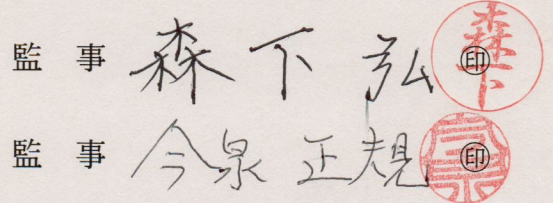 監事 森下弘 ㊞
監事 今泉正規 ㊞